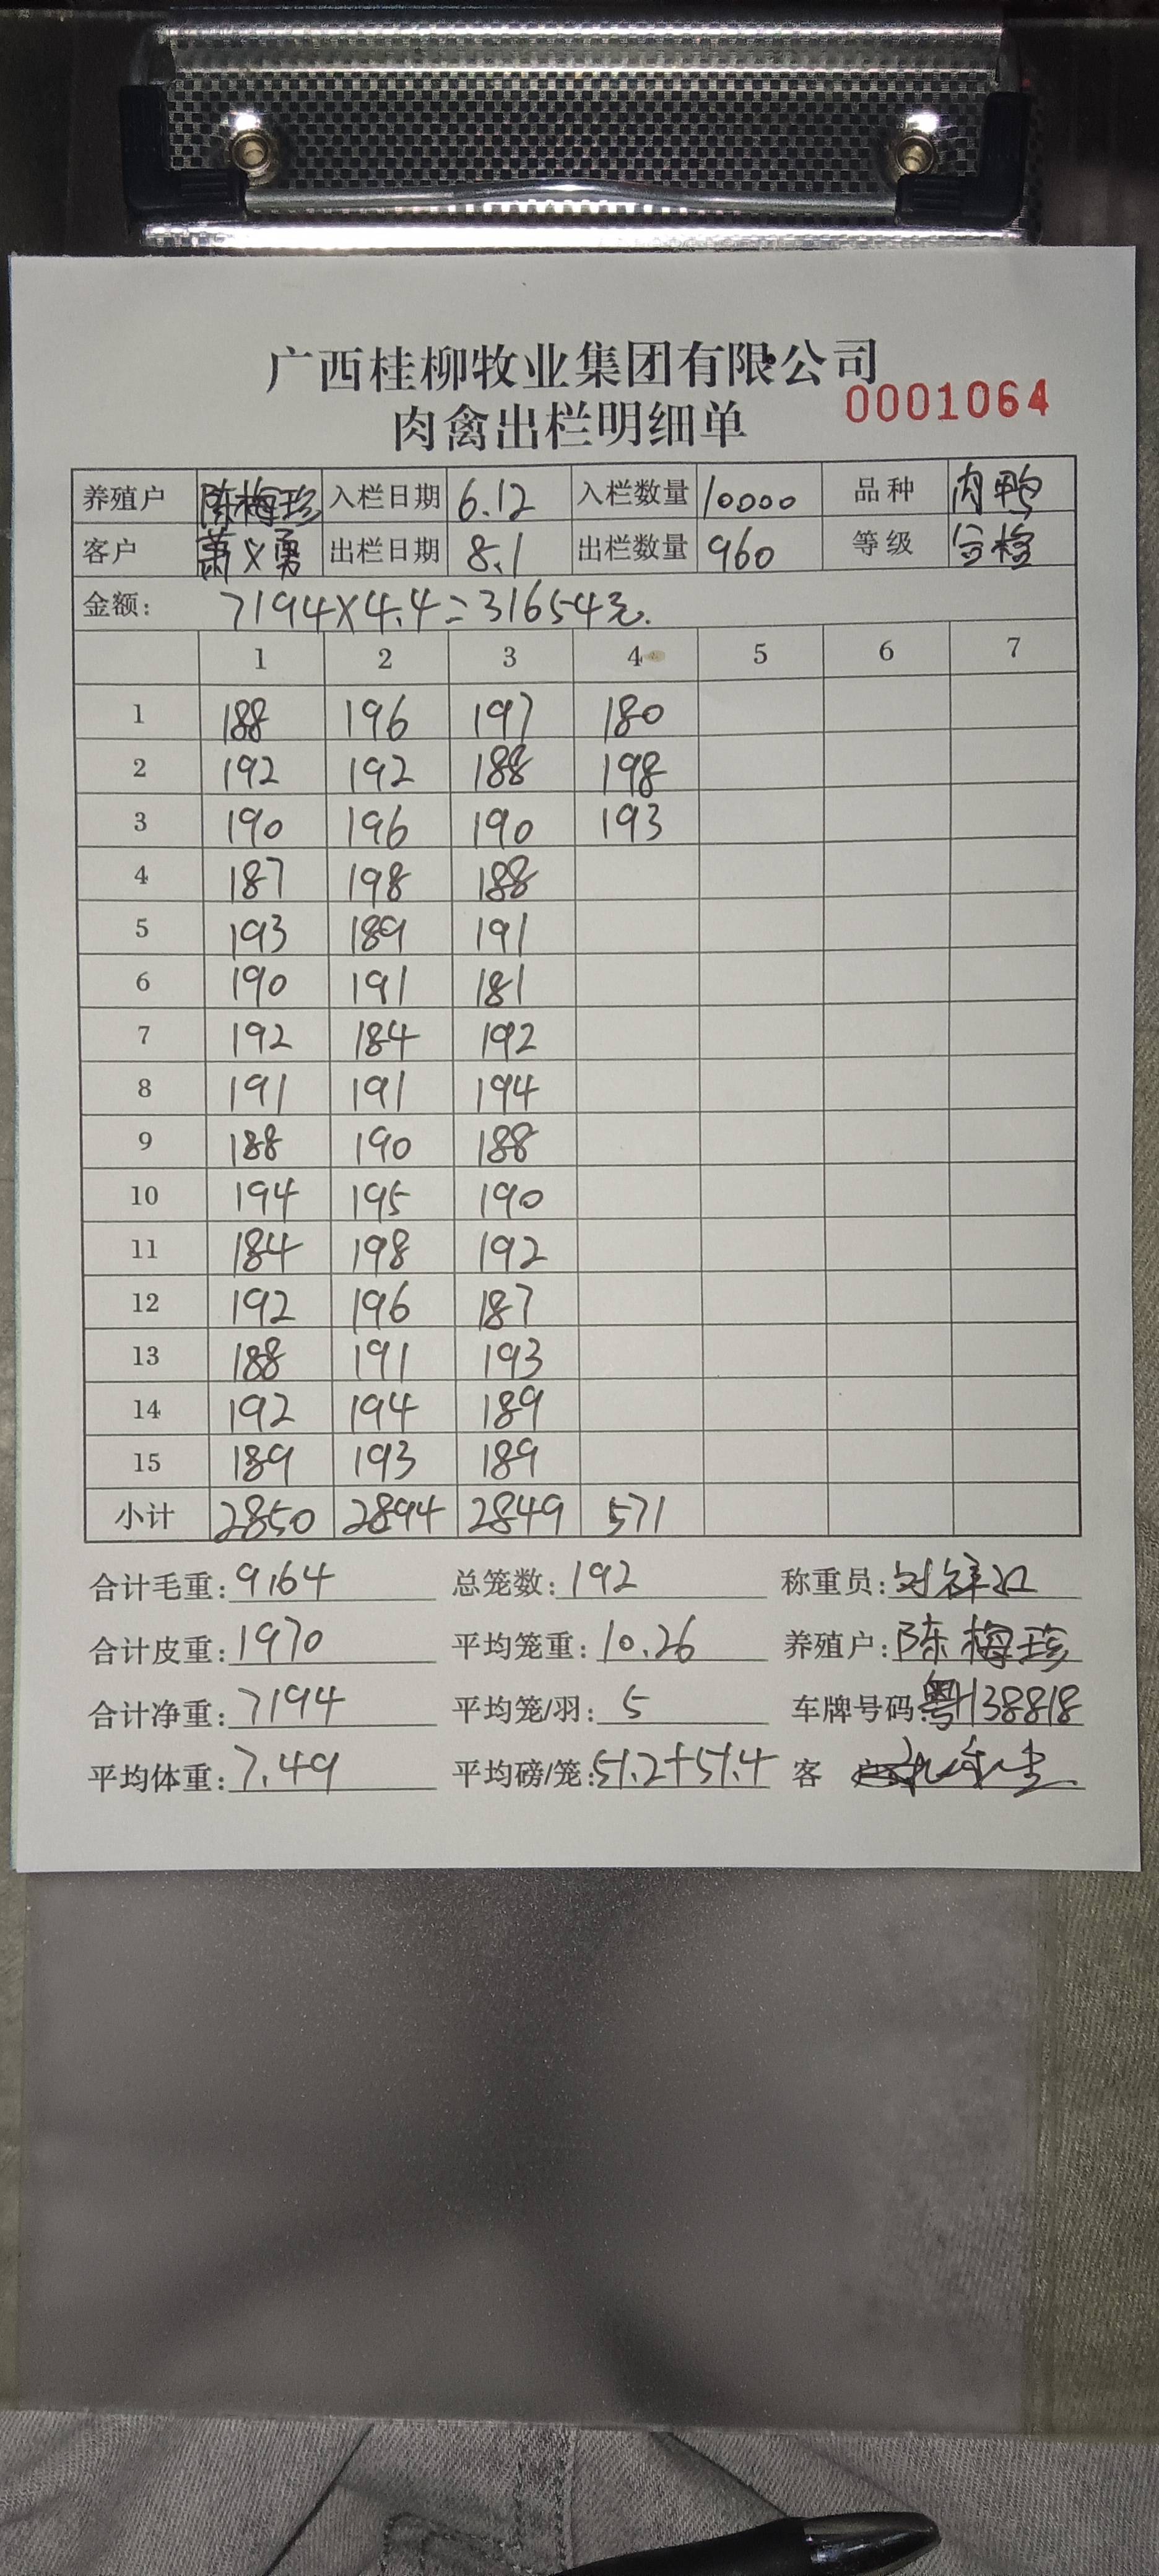 广西桂柳牧业集团有限公司
肉禽出栏明细单 0001064
养殖户 陈梅珍 入栏日期 6.12 入栏数量 10000 品种 肉鸭
客户 萧义勇 出栏日期 8.1 出栏数量 960 等级 合格
金额: 7194×4.4=31654元.
1 2 3 4 5 6 7
1 188 196 197 180
2 192 192 188 198
3 190 196 190 193
4 187 198 188
5 193 189 191
6 190 191 181
7 192 184 192
8 191 191 194
9 188 190 188
10 194 195 190
11 184 198 192
12 192 196 187
13 188 191 193
14 192 194 189
15 189 193 189
小计 2850 2894 2849 571
合计毛重: 9164 总笼数: 192 称重员:
合计皮重: 1970 平均笼重: 10.26 养殖户: 陈梅珍
合计净重: 7194 平均笼/羽: 5 车牌号码 粤H38818
平均体重: 7.49 平均磅/笼: 51.2+51.4 客